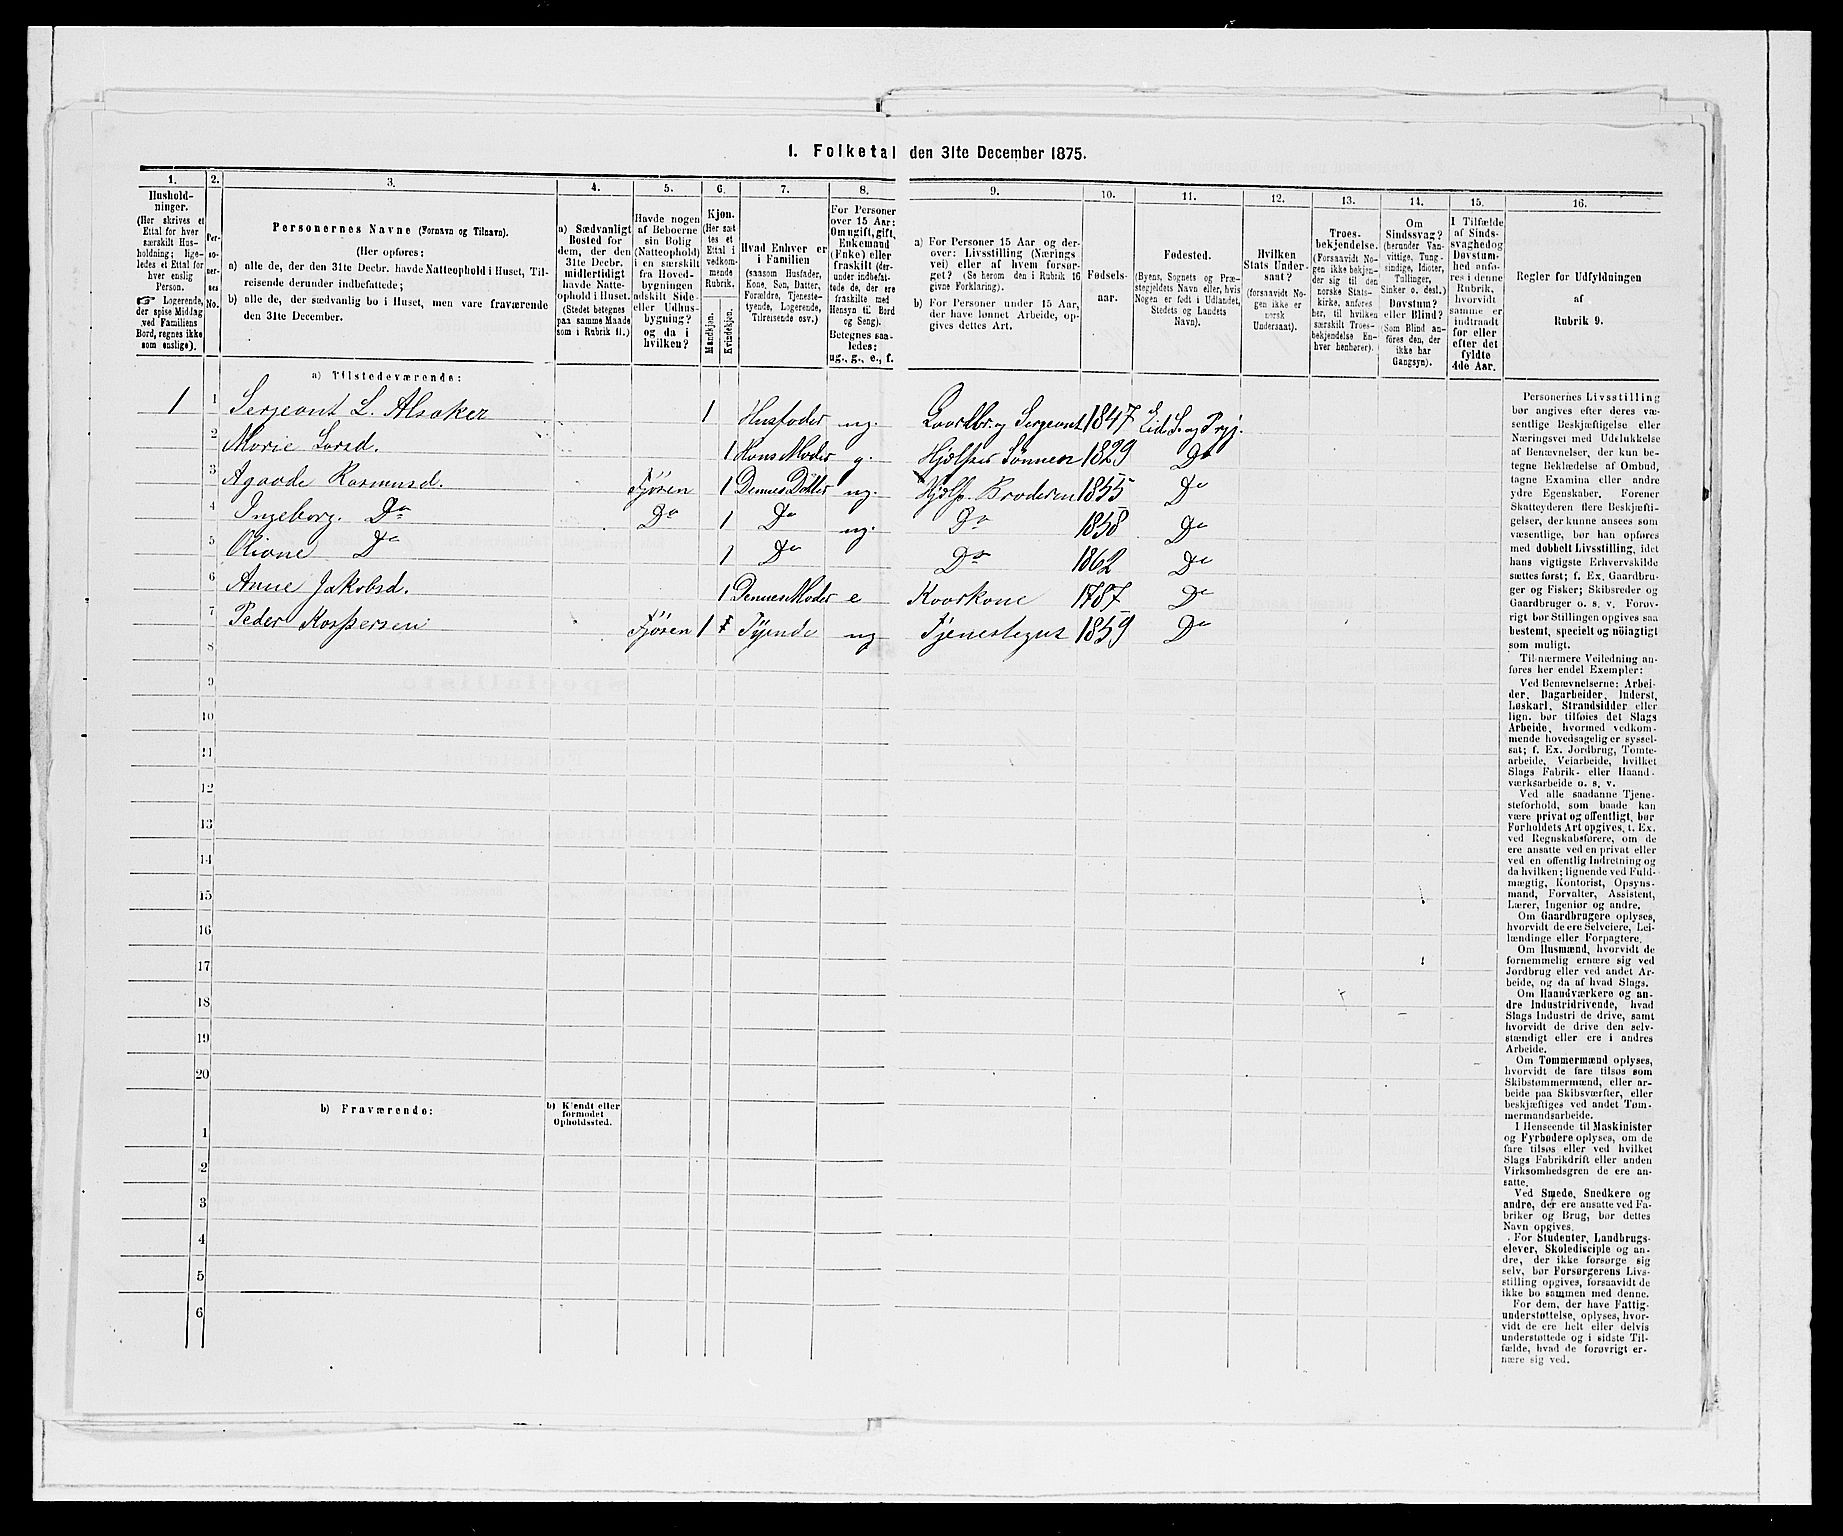 1. Folketal den 31te December 1875.
1. 2. 3. 4. 5. 6. 7. 8. 9. 10. 11. 12. 13. 14. 15. 16.
Hushold-
ninger.
(Her skrives et
Ettal for hver
særskilt Hus-
holdning; lige-
ledes et Ettal for
hver enslig
Person.
☞ Logerende,
der spise Middag
ved Familiens
Bord, regnes ikke
som enslige).
Per-
so-
ner-
nes
No.
Personernes Navne (Fornavn og Tilnavn).
(Her opføres:
a) alle de, der den 31te Decbr. havde Natteophold i Huset, Til-
reisende derunder indbefattede;
b) alle de, der sædvanlig bo i Huset, men vare fraværende
den 31te December.
a) Sædvanligt
Bosted for
dem, der den
31te Decbr.
midlertidigt
havde Natte-
ophold i Huset.
(Stedet betegnes
paa samme Maade
som i Rubrik 11.)
Havde nogen
af Beboerne
sin Bolig
(Natteophold)
i en særskilt
fra Hoved-
bygningen
adskilt Side-
eller Udhus-
bygning?
og da i
hvilken?
Kjøn.
(Her sæt-
tes et
Ettal i
vedkom-
mende
Rubrik.
Mandkjøn.
Kvindekjøn.
Hvad Enhver er
i Familien
(saasom Husfader,
Kone, Søn, Datter,
Forældre, Tjeneste-
tyende, Logerende,
Tilreisende osv.)
For Personer
over 15 Aar:
Om ugift, gift,
Enkemand
(Enke) eller
fraskilt (der-
under indbefat-
tede de, der ere
fraskilte med
Hensyn til Bord
og Seng).
Betegnes saa-
ledes:
ug., g., e., f.
a) For Personer 15 Aar og der-
over: Livsstilling (Nærings-
vei) eller af hvem forsør-
get? (Se herom den i Rubrik 16
givne Forklaring).
b) For Personer under 15 Aar,
der have lønnet Arbeide, op-
gives dettes Art.
Fødsels-
aar.
Fødested.
(Byens, Sognets og Præ-
stegjeldets Navn eller, hvis
Nogen er født i Udlandet,
Stedets og Landets
Navn).
Hvilken
Stats Under-
saat?
(forsaavidt No-
gen ikke er
norsk
Undersaat).
Troes-
bekjendelse.
(Forsaavidt No-
gen ikke bekjen-
der sig til den
norske Stats-
kirke, anføres
her, til hvilken
særskilt Troes-
bekjendelse En-
hver henhører).
Om
Sindssvag?
(herunder Van-
vittige, Tung-
sindige, Idioter,
Tullinger,
Sinker o. desl.)
Døvstum?
eller Blind?
(Som Blind an-
føres den, der
ikke har
Gangsyn).
I Tilfælde
af Sinds-
svaghed og
Døvstum-
hed anfø-
res i denne
Rubrik,
hvorvidt
samme er
indtraadt
før eller
efter det
fyldte
4de Aar.
Regler for Udfyldningen
af
Rubrik 9.
a) Tilstedeværende:
1 1 Sergeant L. Alsaker 1 Husfader ug. Gaardbr. og Sergeant 1847 Eid S. og Prgj.
2 Marie Larsd. 1 Hans Moder g. Hjælper Sønnen 1829 Do
3 Agaade Rasmusd. Fjøsen 1 Dennes Datter ug. Hjælp. Broderen 1855 Do
4 Ingeborg Do Do 1 Do ug. Do 1858 Do
5 Oliane Do 1 Do Do 1862 Do
6 Anne Jakobsd. 1 Dennes Moder e Kaarkone 1787 Do
7 Peder Kaspersen Fjøsen 1 Tyende ug Tjenestegut 1859 Do
8
9
10
11
12
13
14
15
16
17
18
19
20
b) Fraværende:
b) Kjendt eller
formodet
Opholdssted.
1
2
3
4
5
6
Personernes Livsstilling
bør angives efter deres væ-
sentlige Beskjæftigelse eller
Næringsvei med Udelukkelse
af Benævnelser, der kun be-
tegne Beklædelse af Ombud,
tagne Examina eller andre
ydre Egenskaber. Forener
Skatteyderen flere Beskjæfti-
gelser, der kunne ansees som
væsentlige, bør han opføres
med dobbelt Livsstilling, idet
hans vigtigste Erhvervskilde
sættes først; f. Ex. Gaardbru-
ger og Fisker; Skibsreder og
Gaardbruger o. s. v. Forøv-
rigt bør Stillingen opgives saa
bestemt, specielt og nöiagtigt
som muligt.
Til nærmere Veiledning an-
føres her endel Exempler:
Ved Benævnelserne: Arbei-
der, Dagarbeider, Inderst,
Løskarl, Strandsidder eller
lign. bør tilføies det Slags
Arbeide, hvormed vedkom-
mende hovedsagelig er syssel-
sat; f. Ex. Jordbrug, Tomte-
arbeide, Veiarbeide, hvilket
Slags Fabrik- eller Haand-
værksarbeide o. s. v.
Ved alle saadanne Tjene-
steforhold, som baade kan
være privat og offentligt, bør
Forholdets Art opgives, t. Ex.
ved Regnskabsførere, om de
ere ansatte ved en privat eller
ved en offentlig Indretning og
da hvilken; lignende ved Fuld-
mægtig, Kontorist, Opsyns-
mand, Forvalter, Assistent,
Lærer, Ingeniør og andre.
Om Gaardbrugere oplyses,
hvorvidt de ere Selveiere, Lei-
lændinge eller Forpagtere.
Om Husmænd, hvorvidt de
fornemmelig ernære sig ved
Jordbrug eller ved andet Ar-
beide, og da af hvad Slags.
Om Haandværkere og an-
dre Industridrivende, hvad
Slags Industri de drive, samt
hvorvidt de drive den selv-
stændigt eller ere i andres
Arbeide.
Om Tømmermænd oplyses,
hvorvidt de fare tilsøs som
Skibstømmermænd, eller ar-
beide paa Skibsværfter, eller
beskjæftiges ved andet Tøm-
mermandsarbeide.
I Henseende til Maskinister
og Fyrbødere oplyses, om de
fare tilsøs eller ved hvilket
Slags Fabrikdrift eller anden
Virksomhedsgren de ere an-
satte.
Ved Smede, Snedkere og
andre, der ere ansatte ved Fa-
briker og Brug, bør dettes
Navn opgives.
For Studenter, Landbrugs-
elever, Skoledisciple og an-
dre, der ikke forsørge sig
selv, bør Forsørgerens Livs-
stilling opgives, forsaavidt de
ikke bo sammen med denne.
For dem, der have Fattig-
understøttelse, oplyses, hvor-
vidt de ere helt eller delvis
understøttede og i sidste Til-
fælde, hvad de forøvrigt er-
nære sig ved.